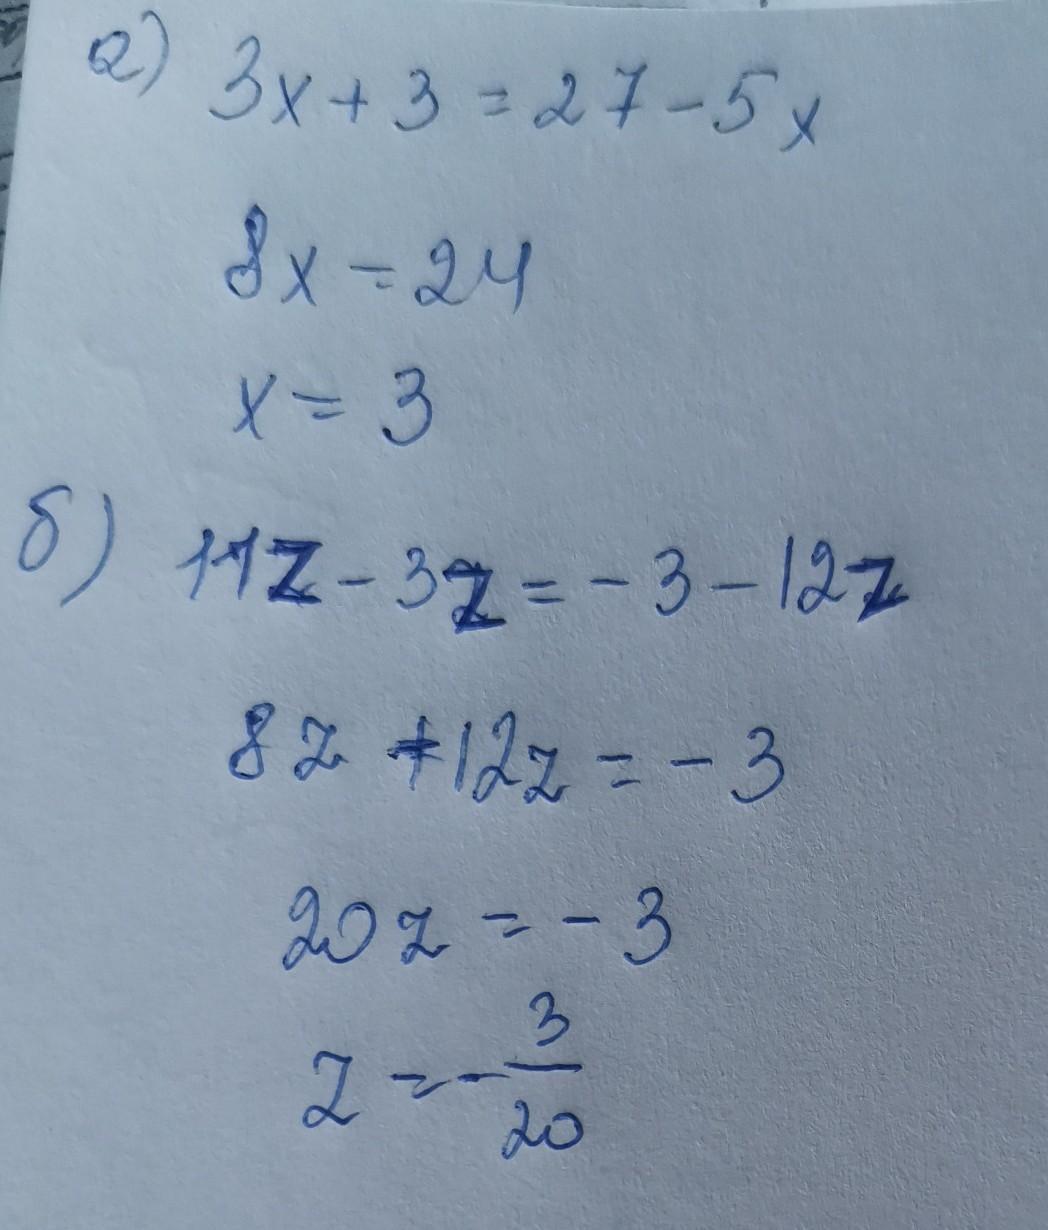 а) 3x + 3 = 27 - 5x
8x = 24
x = 3
б) 11z - 3z = - 3 - 12z
8z + 12z = - 3
20z = - 3
z = - 3/20